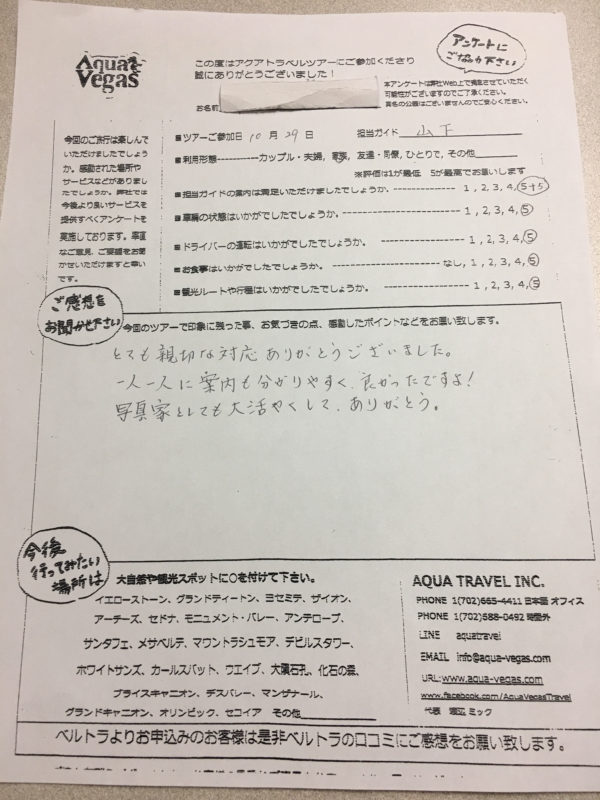 Aqua Vegas
この度はアクアトラベルツアーにご参加くださり
誠にありがとうございました！
アンケートに
ご協力下さい
本アンケートは弊社Web上で掲載させていただく
可能性がございますのでご了承ください。
実名の公開はございませんのでご安心ください。
お名前
今回のご旅行は楽しんで
いただけましたでしょう
か。感動された場所や
サービスなどがありまし
たでしょうか。弊社では
今後より良いサービスを
提供すべくアンケートを
実施しております。率直
なご意見、ご要望をお聞
かせいただけますと幸い
です。
■ツアーご参加日 10 月 29 日 担当ガイド 山下
■利用形態-----------カップル・夫婦, 家族, 友達・同僚, ひとりで, その他
※評価は1が最低 5が最高でお願いします
■担当ガイドの案内は満足いただけましたでしょうか。------------- 1, 2, 3, 4, 5+5
■車輌の状態はいかがでしたでしょうか。---------------------- 1, 2, 3, 4, 5
■ドライバーの運転はいかがでしたでしょうか。------------------- 1, 2, 3, 4, 5
■お食事はいかがでしたでしょうか。---------------------- なし, 1, 2, 3, 4, 5
■観光ルートや行程はいかがでしたでしょうか。------------------ 1, 2, 3, 4, 5
ご感想を
お聞かせ下さい
今回のツアーで印象に残った事、お気づきの点、感動したポイントなどをお願い致します。
とても親切な対応ありがとうございました。
一人一人に案内も分かりやすく、良かったですよ！
写真家としても大活やくして、ありがとう。
今後
行ってみたい
場所は
大自然や観光スポットに○を付けて下さい。
イエローストーン、グランドティートン、ヨセミテ、ザイオン、
アーチーズ、セドナ、モニュメント・バレー、アンテロープ、
サンタフェ、メサベルデ、マウントラシュモア、デビルスタワー、
ホワイトサンズ、カールスバット、ウエイブ、大隕石孔、化石の森、
ブライスキャニオン、デスバレー、マンザナール、
グランドキャニオン、オリンピック、セコイア その他
AQUA TRAVEL INC.
PHONE 1(702)665-4411 日本語 オフィス
PHONE 1(702)588-0492 時間外
LINE aquatravel
EMAIL info@aqua-vegas.com
URL: www.aqua-vegas.com
www.facebook.com/AquaVegasTravel
代表 渡辺 ミック
ベルトラよりお申込みのお客様は是非ベルトラの口コミにご感想をお願い致します。